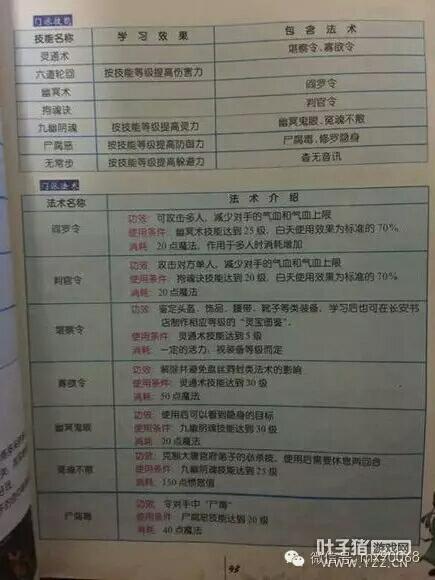 门派技能
技能名称 学习效果 包含法术
灵通术 堪察令、寡欲令
六道轮回 按技能等级提高伤害力
幽冥术 阎罗令
拘魂诀 判官令
九幽阴魂 按技能等级提高灵力 幽冥鬼眼、冤魂不散
尸腐恶 按技能等级提高防御力 尸腐毒、修罗隐身
无常步 按技能等级提高躲避力 杳无音讯
门派法术
法术名称 法术介绍
阎罗令 功效：可攻击多人，减少对手的气血和气血上限
使用条件：幽冥术技能达到25级，白天使用效果为标准的70%
消耗：20点魔法，作用于多人时消耗增加
判官令 功效：攻击对方单人，减少对手的气血和气血上限
使用条件：拘魂诀技能达到20级，白天使用效果为标准的70%
消耗：20点魔法
堪察令 功效：鉴定头盔、饰品、腰带、靴子等类装备，学习后也可在长安书
店制作相应等级的“灵宝图鉴”。
使用条件：灵通术技能达到5级
消耗：一定的活力，视装备等级而定
寡欲令 功效：解除并避免盘丝洞封类法术的影响
使用条件：灵通术技能达到30级
消耗：50点魔法
幽冥鬼眼 功效：使用后可以看到隐身的目标
使用条件：九幽阴魂技能达到30级
消耗：20点魔法
冤魂不散 功效：克制大唐官府弟子的必杀技，使用后需要休息两回合
使用条件：九幽阴魂技能达到25级
消耗：150点愤怒值
尸腐毒 功效：令对手中“尸毒”
使用条件：尸腐恶技能达到20级
消耗：40点魔法
叶子猪游戏网
WWW.YZZ.CN